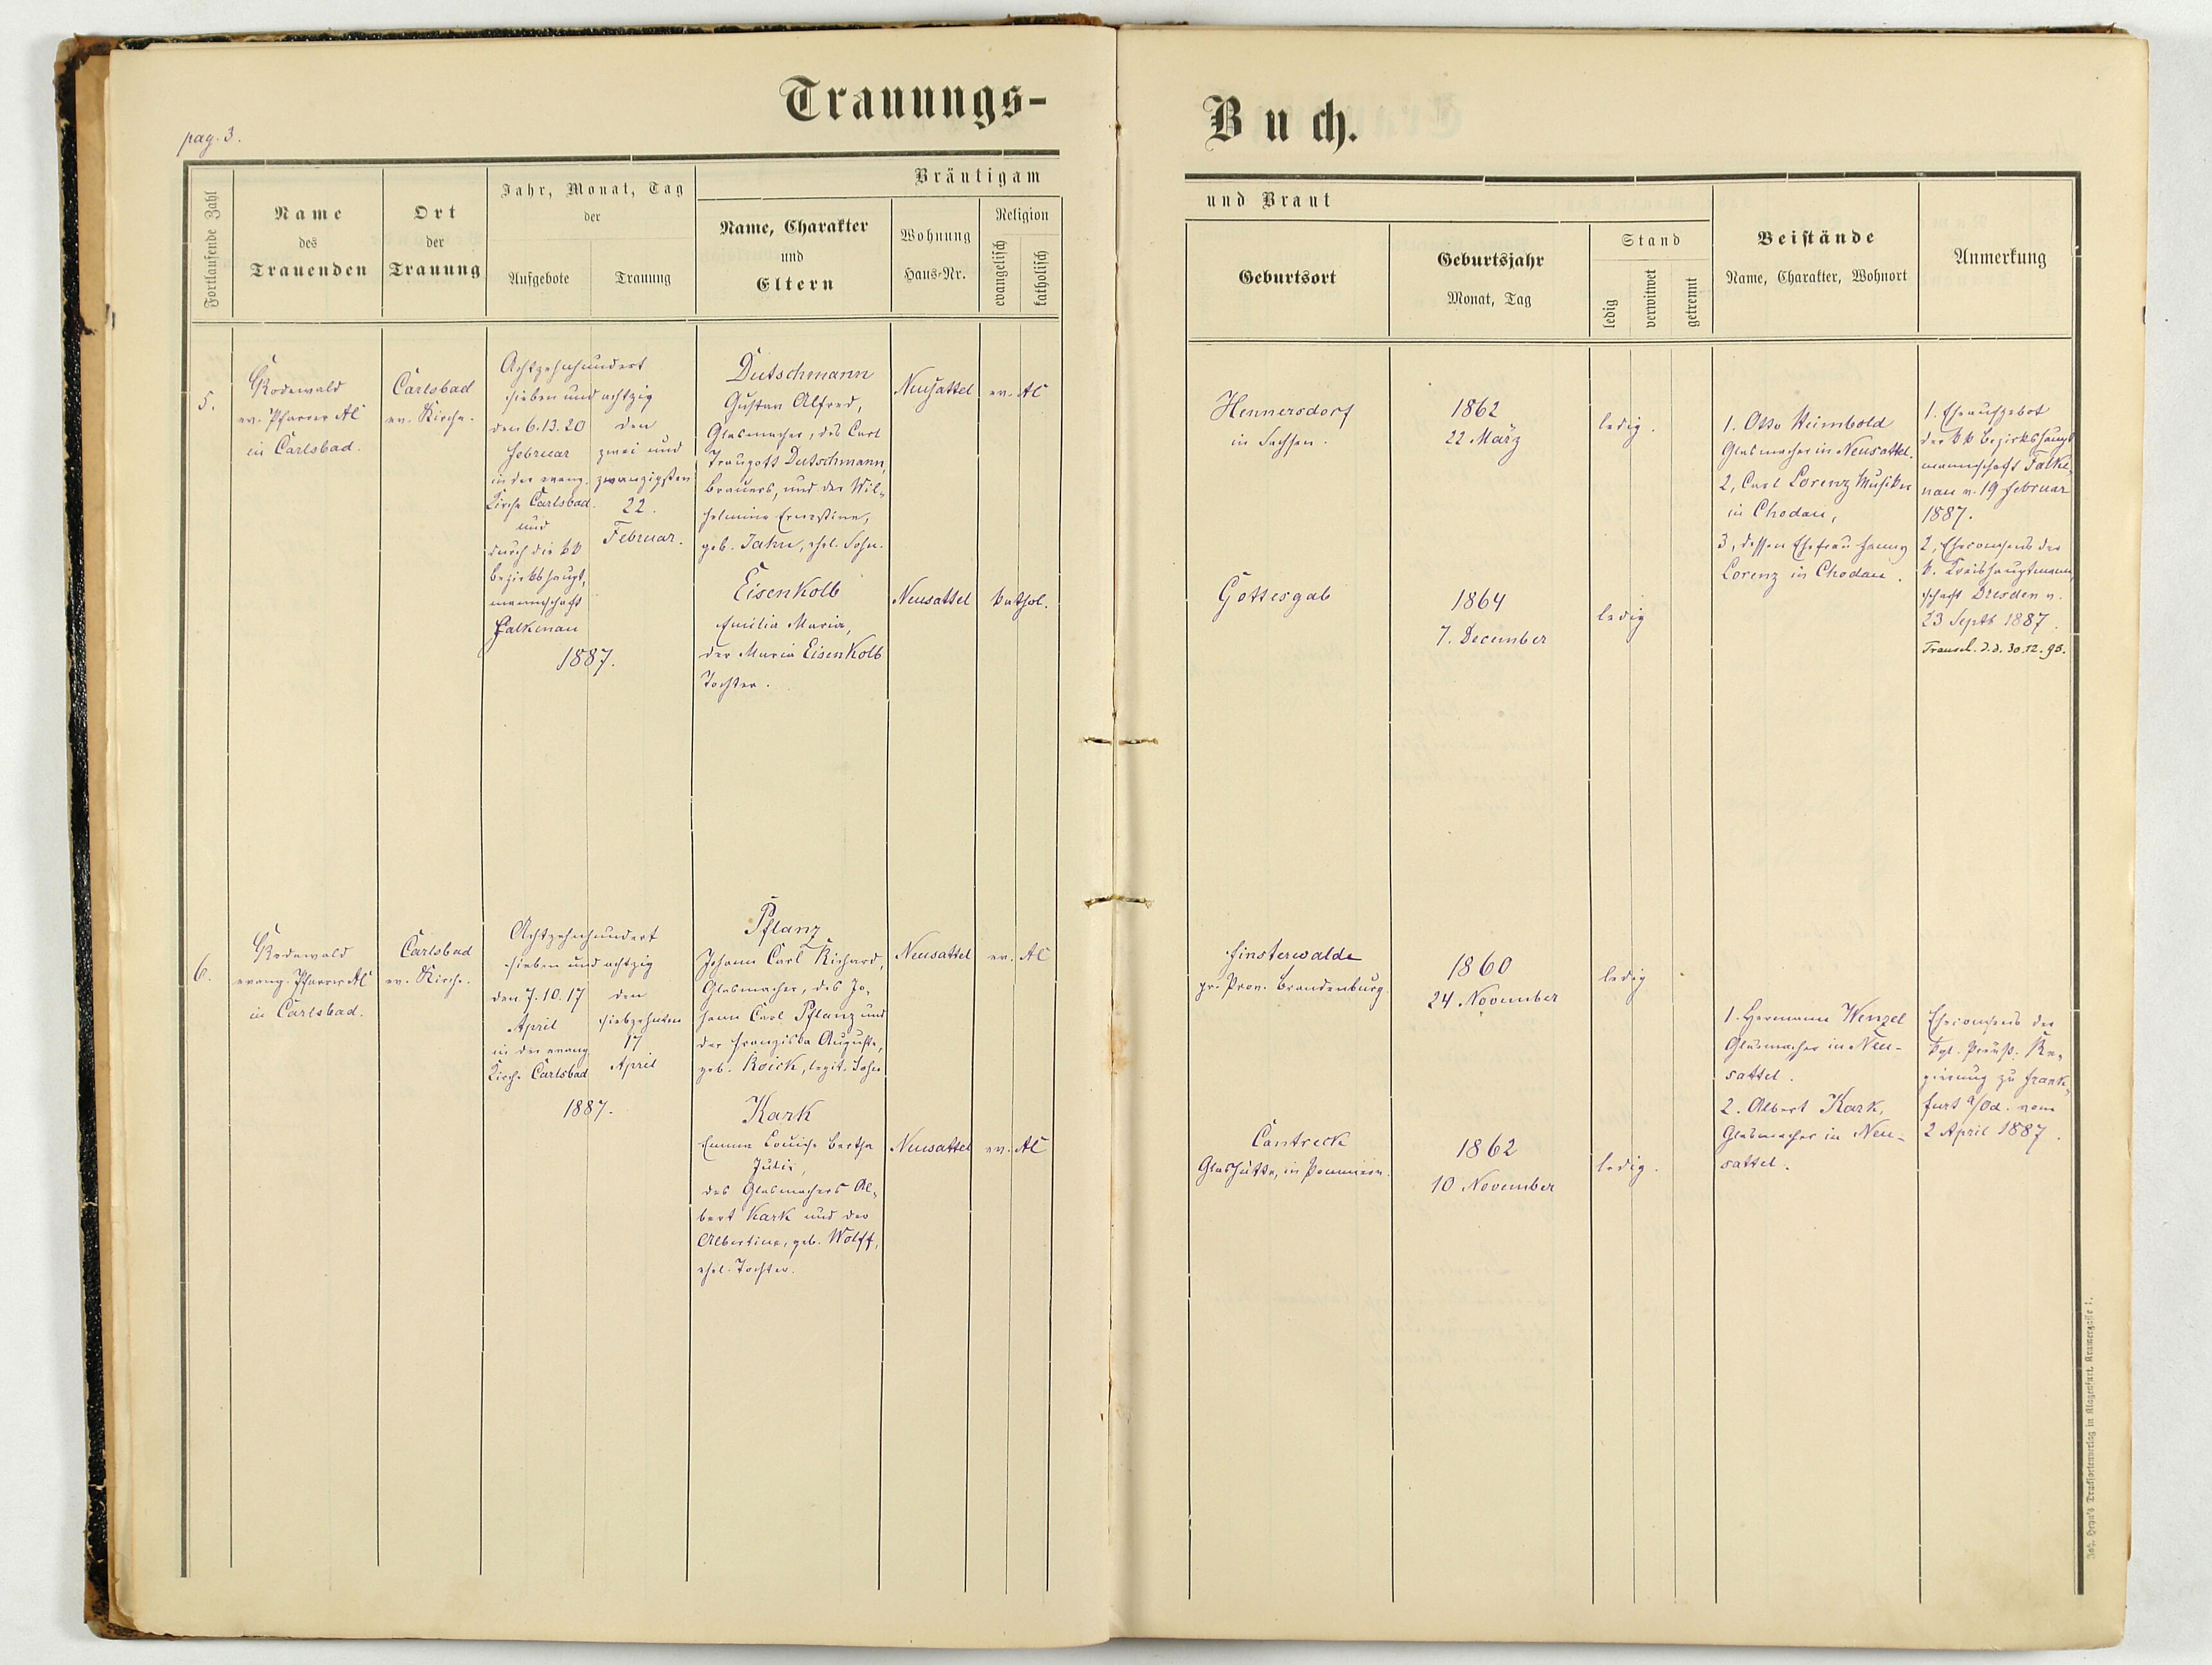 pag. 3.
Trauungs-
Buch.
Fortlaufende Zahl
Name
des
Trauenden
Ort
der
Trauung
Jahr, Monat, Tag
der
Aufgebote
Trauung
Bräutigam
Name, Charakter
und
Eltern
Wohnung
Haus-Nr.
Religion
evangelisch
katholisch
und Braut
Geburtsort
Geburtsjahr
Monat, Tag
Stand
ledig
verwitwet
getrennt
Beistände
Name, Charakter, Wohnort
Anmerkung
5.
Rodewald
ev. Pfarrer AC
in Carlsbad.
Carlsbad
ev. Kirche.
Achtzehnhundert
sieben und achtzig
den 6. 13. 20
Februar
in der evang.
Kirche Carlsbad.
und
durch die kk
Bezirkshaupt,
mannschaft
Falkenau
den
zwei und
zwanzigsten
22.
Februar.
1887.
Dutschmann
Gustav Alfred,
Glasmacher, des Carl
Traugott Dutschmann,
Brauers, und der Wil,
helmine Ernestine,
geb. Jahn, ehel. Sohn.
Neusattel
ev. AC
Hennersdorf
in Sachsen.
1862
22 März
ledig.
Eisenkolb
Emilia Maria,
der Maria Eisenkolb
Tochter.
Neusattel
kathol.
Gottesgab
1864
7. December
ledig
1. Otto Reimbold
Glasmacher in Neusattel.
2, Carl Lorenz Musiker
in Chodau,
3, dessen Ehefrau Fanny
Lorenz in Chodau.
1. Eheaufgebot
der kk Bezirkshaupt
mannschaft Falke,
nau v. 19 Februar
1887.
2, Eheconsens der
k. Kreishauptmann,
schaft Dresden v.
23 Septb 1887.
Trausch. d. d. 30.12.95.
6.
Rodewald
evang. Pfarrer AC
in Carlsbad.
Carlsbad
ev. Kirche.
Achtzehnhundert
sieben und achtzig
den 7. 10. 17
April
in der evang.
Kirche Carlsbad
den
siebzehnten
17
April
1887.
Pflanz
Johann Carl Richard,
Glasmacher, des Jo,
hann Carl Pflanz und
der Franziska Auguste,
geb. Koick, legit. Sohn
Neusattel
ev. AC
Finsterwalde
pr. Prov. Brandenburg.
1860
24 November
ledig
Kark
Emma Louise Bertha
Julie,
des Glasmachers Al,
bert Kark und der
Albertine, geb. Wolff,
ehel. Tochter.
Neusattel
ev. AC
Cantreck
Glashütte, in Pommern.
1862
10 November
ledig.
1. Hermann Wenzel
Glasmacher in Neu-
sattel.
2. Albert Kark,
Glasmacher in Neu-
sattel.
Eheconsens der
kgl. Preuß. Re,
gierung zu Frank,
furt a/Od. vom
2 April 1887.
Joh. Heyn's Drucksortenverlag in Klagenfurt, Kramergasse 7.